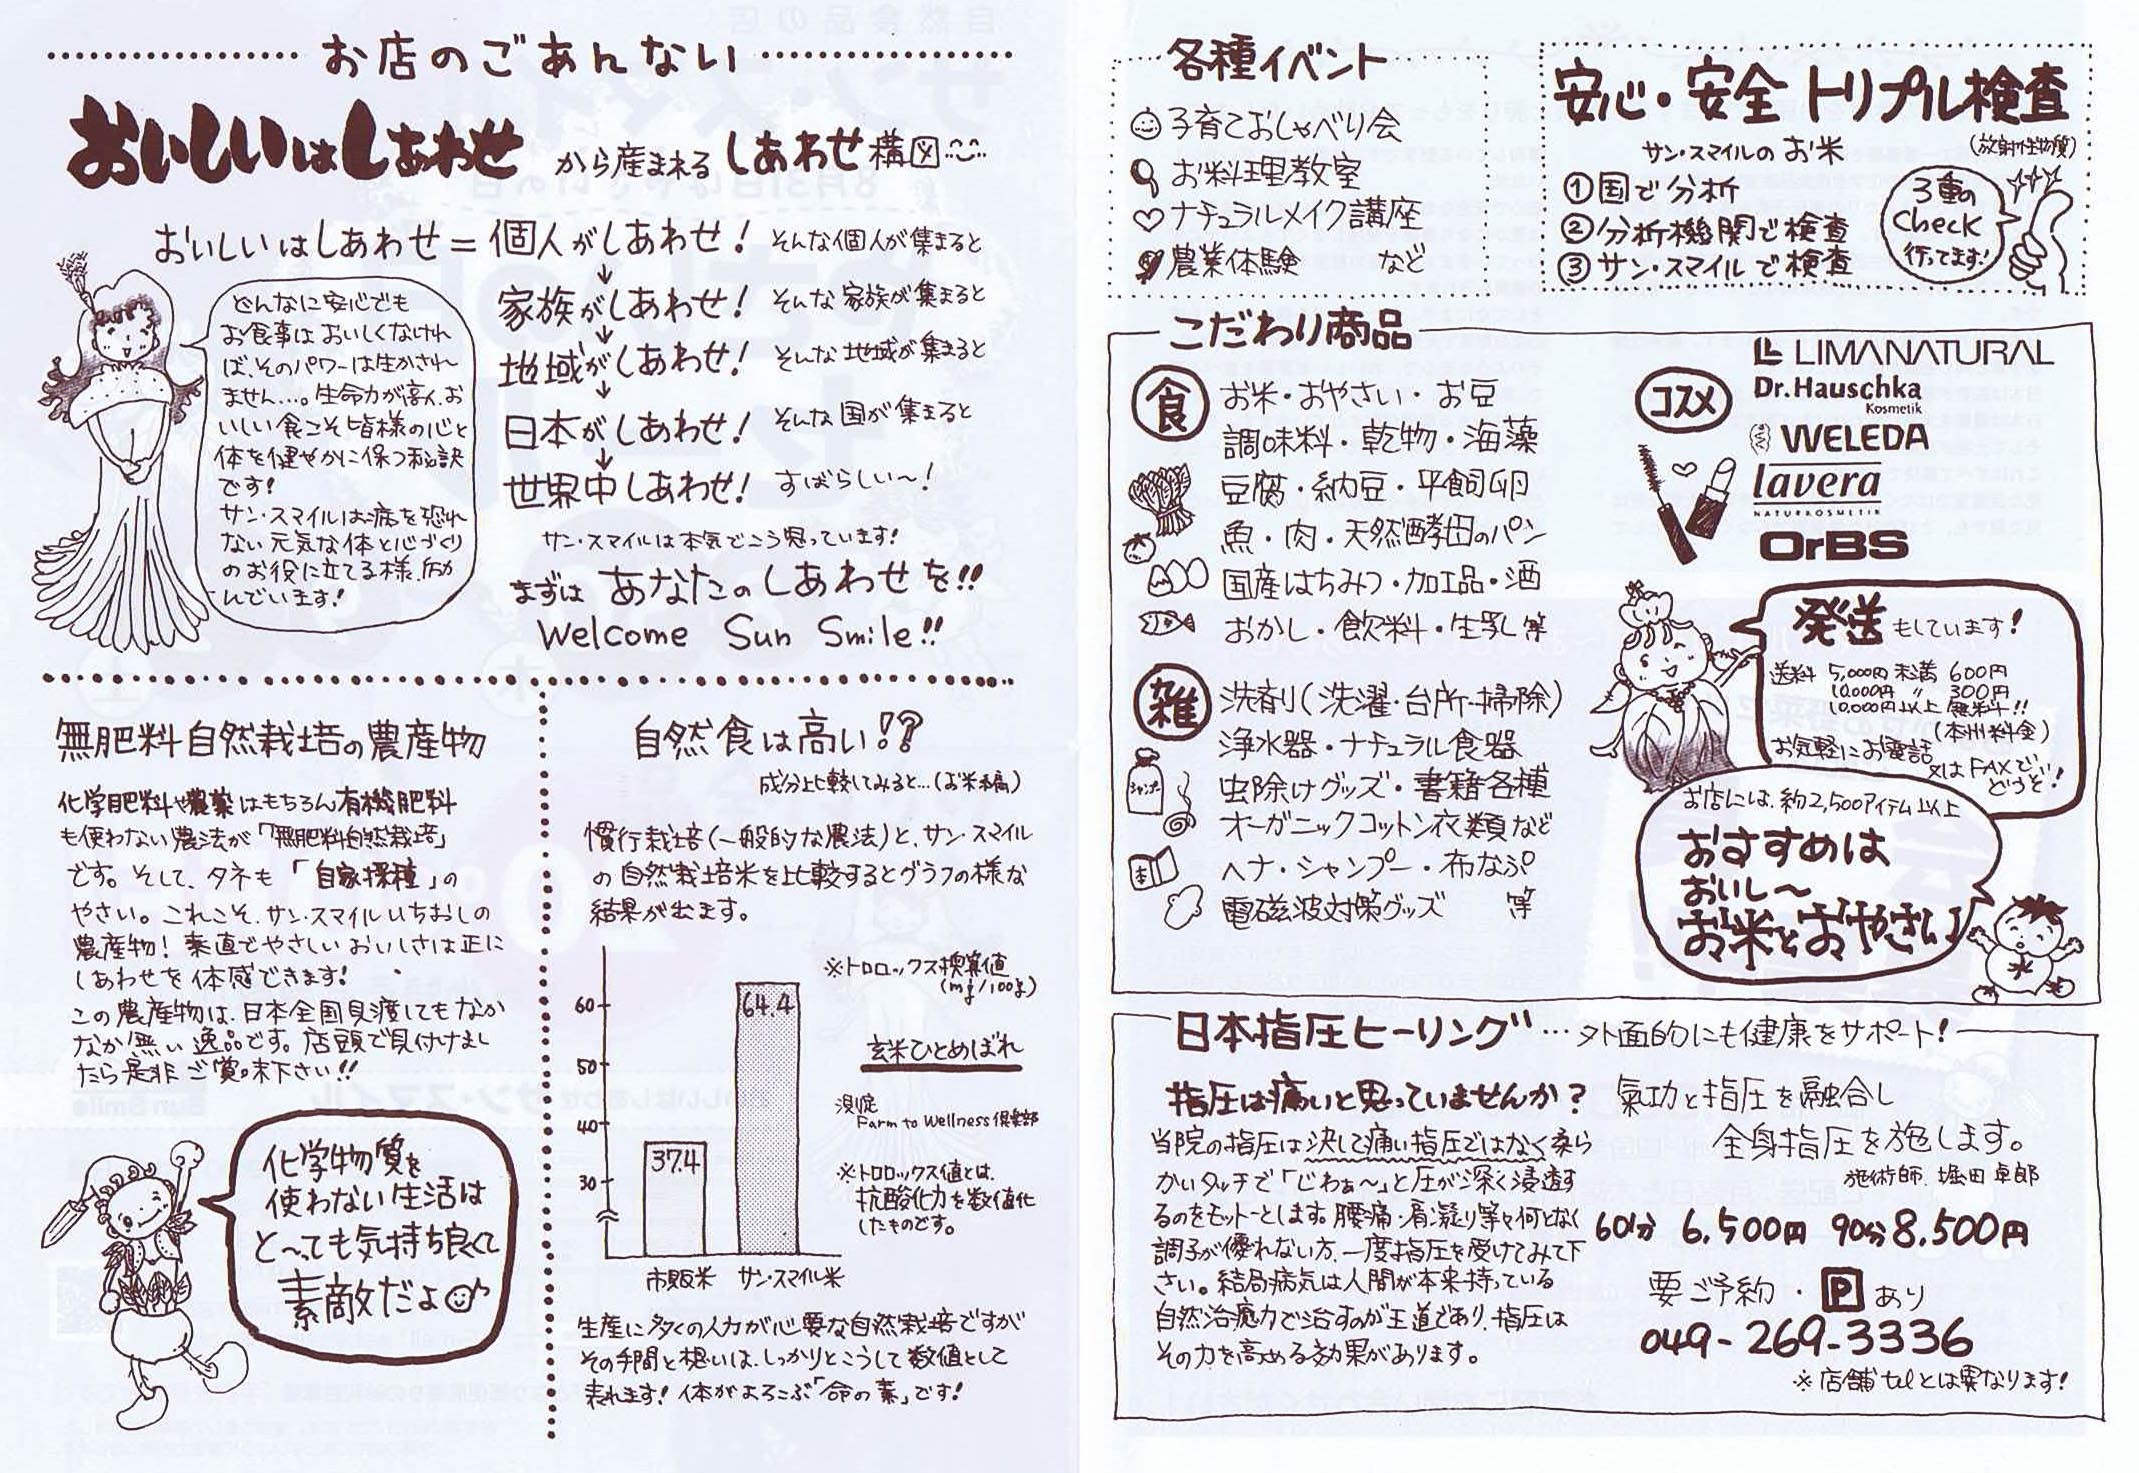 お店のごあんない
おいしいはしあわせ から産まれる しあわせ構図
おいしいはしあわせ = 個人がしあわせ! そんな個人が集まると
↓
家族がしあわせ! そんな家族が集まると
↓
地域がしあわせ! そんな地域が集まると
↓
日本がしあわせ! そんな国が集まると
↓
世界中しあわせ! すばらしい〜!
サン・スマイルは本気でこう思っています!
まずは あなたのしあわせを!!
Welcome Sun Smile!!
どんなに安心でも
お食事はおいしくなけれ
ば、そのパワーは生かされ
ません…。生命力が高く、お
いしい食こそ皆様の心と
体を健やかに保つ秘訣
です!
サン・スマイルは病を恐れ
ない元気な体と心づくり
のお役に立てる様、励
んでいます!
無肥料自然栽培の農産物
化学肥料や農薬はもちろん有機肥料
も使わない農法が「無肥料自然栽培」
です。そして、タネも「自家採種」の
やさい。これこそ、サン・スマイルいちおしの
農産物! 素直でやさしいおいしさは正に
しあわせを体感できます!
この農産物は、日本全国見渡してもなか
なか無い逸品です。店頭で見付けまし
たら是非ご賞味下さい!!
化学物質を
使わない生活は
と〜っても気持ち良くて
素敵だよ
自然食は高い!?
成分比較してみると…(お米編)
慣行栽培(一般的な農法)と、サン・スマイル
の自然栽培米を比較するとグラフの様な
結果が出ます。
※トロロックス換算値
(mg/100g)
60
50
40
30
64.4
37.4
市販米 サン・スマイル米
玄米ひとめぼれ
測定
Farm to Wellness倶楽部
※トロロックス値とは、
抗酸化力を数値化
したものです。
生産に多くの人力が必要な自然栽培ですが
その手間と想いは、しっかりとこうして数値として
表れます! 体がよろこぶ「命の素」です!
各種イベント
子育ておしゃべり会
お料理教室
ナチュラルメイク講座
農業体験 など
安心・安全 トリプル検査
サン・スマイルのお米 (放射性物質)
①国で分析
②分析機関で検査
③サン・スマイルで検査
3重の
Check
行ってます!
こだわり商品
食
お米・おやさい・お豆
調味料・乾物・海藻
豆腐・納豆・平飼卵
魚・肉・天然酵母のパン
国産はちみつ・加工品・酒
おかし・飲料・生乳等
雑
洗剤(洗濯・台所・掃除)
浄水器・ナチュラル食器
虫除けグッズ・書籍各種
オーガニックコットン衣類など
ヘナ・シャンプー・布なぷ
電磁波対策グッズ 等
シャンプー
本
コスメ
LIMANATURAL
Dr.Hauschka
Kosmetik
WELEDA
lavera
NATURKOSMETIK
OrBS
発送もしています!
送料 5,000円未満 600円
10,000円 〃 300円
10,000円以上 無料!!
(本州料金)
お気軽にお電話
又はFAXで
どうぞ!
お店には、約2,500アイテム以上
おすすめは
おいし〜
お米とおやさい
米
日本指圧ヒーリング…外面的にも健康をサポート!
指圧は痛いと思っていませんか?
当院の指圧は決して痛い指圧ではなく柔ら
かいタッチで「じわぁ〜」と圧が深く浸透す
るのをモットーとします。腰痛・肩凝り等々何となく
調子が優れない方、一度指圧を受けてみて下
さい。結局病気は人間が本来持っている
自然治癒力で治すのが王道であり、指圧は
その力を高める効果があります。
氣功と指圧を融合し
全身指圧を施します。
施術師、堀田卓郎
60分 6,500円 90分 8,500円
要ご予約・Pあり
049-269-3336
※店舗telとは異なります!